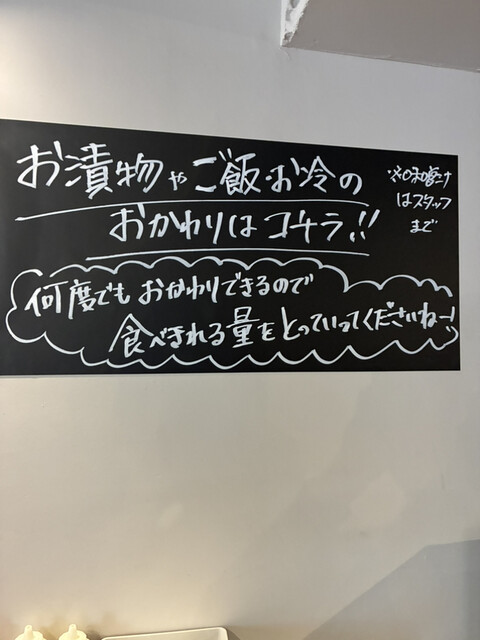 お漬物やご飯・お冷の
おかわりはコチラ!!
※味噌汁
はスタッフ
まで
何度でもおかわりできるので
食べきれる量をとっていってくださいねー!